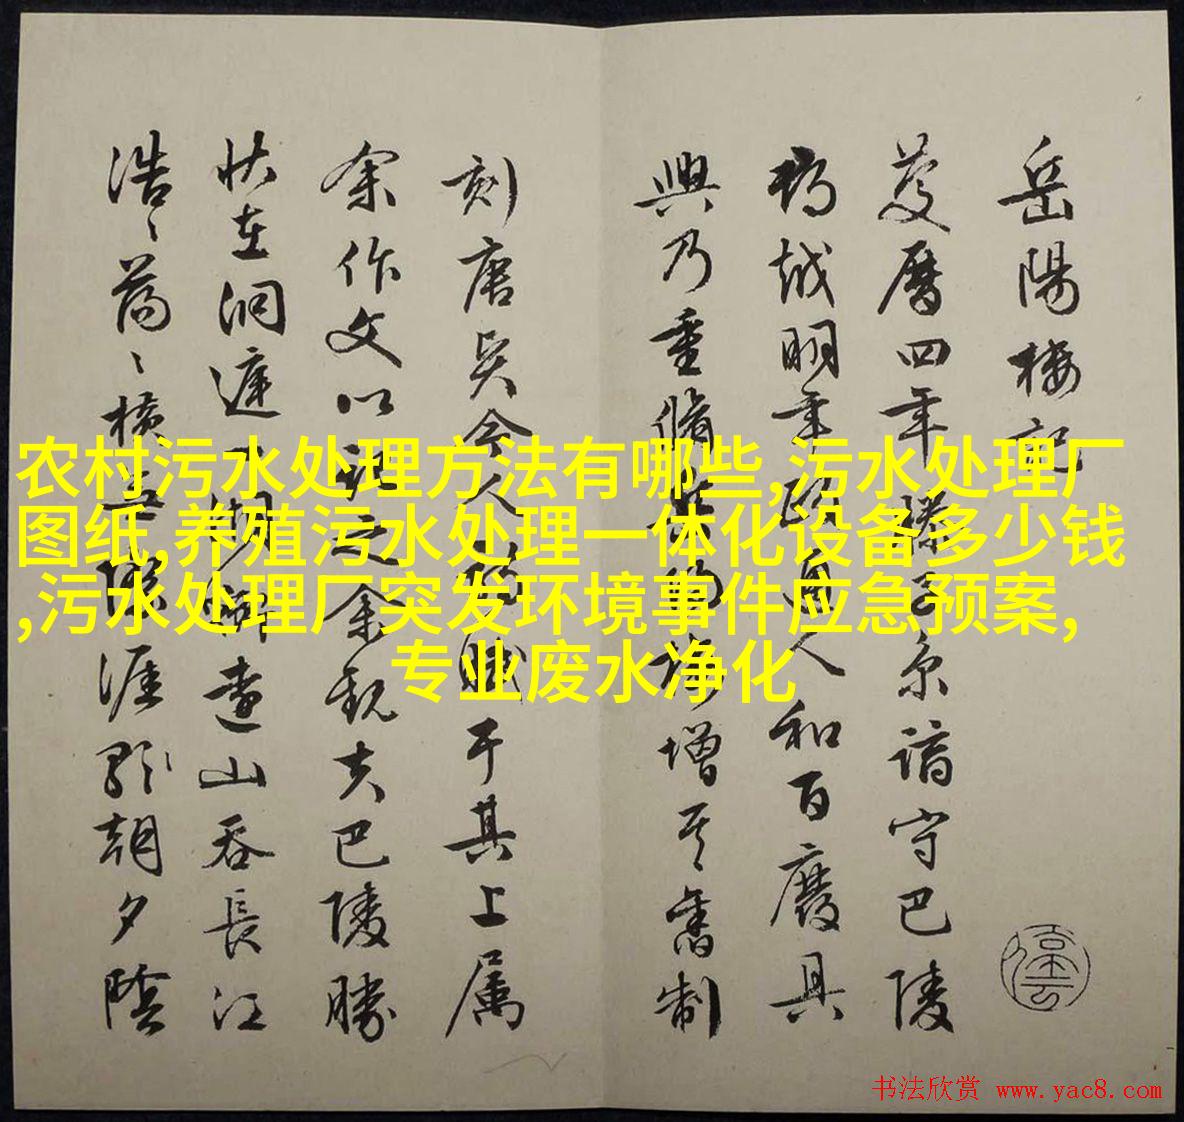 岳陽樓記
慶曆四年滕子京謫守巴陵
郡越明年政通人和百廢具
興乃重脩岳陽樓增其舊制
刻唐賢今人詩賦于其上屬
余作文以記之余觀夫巴陵勝
狀在洞庭一湖銜遠山吞長江
浩〻蕩〻橫無際涯朝夕陰
农村污水处理方法有哪些,污水处理厂
图纸,养殖污水处理一体化设备多少钱
,污水处理厂突发环境事件应急预案,
专业废水净化
书法欣赏 www.yac8.com